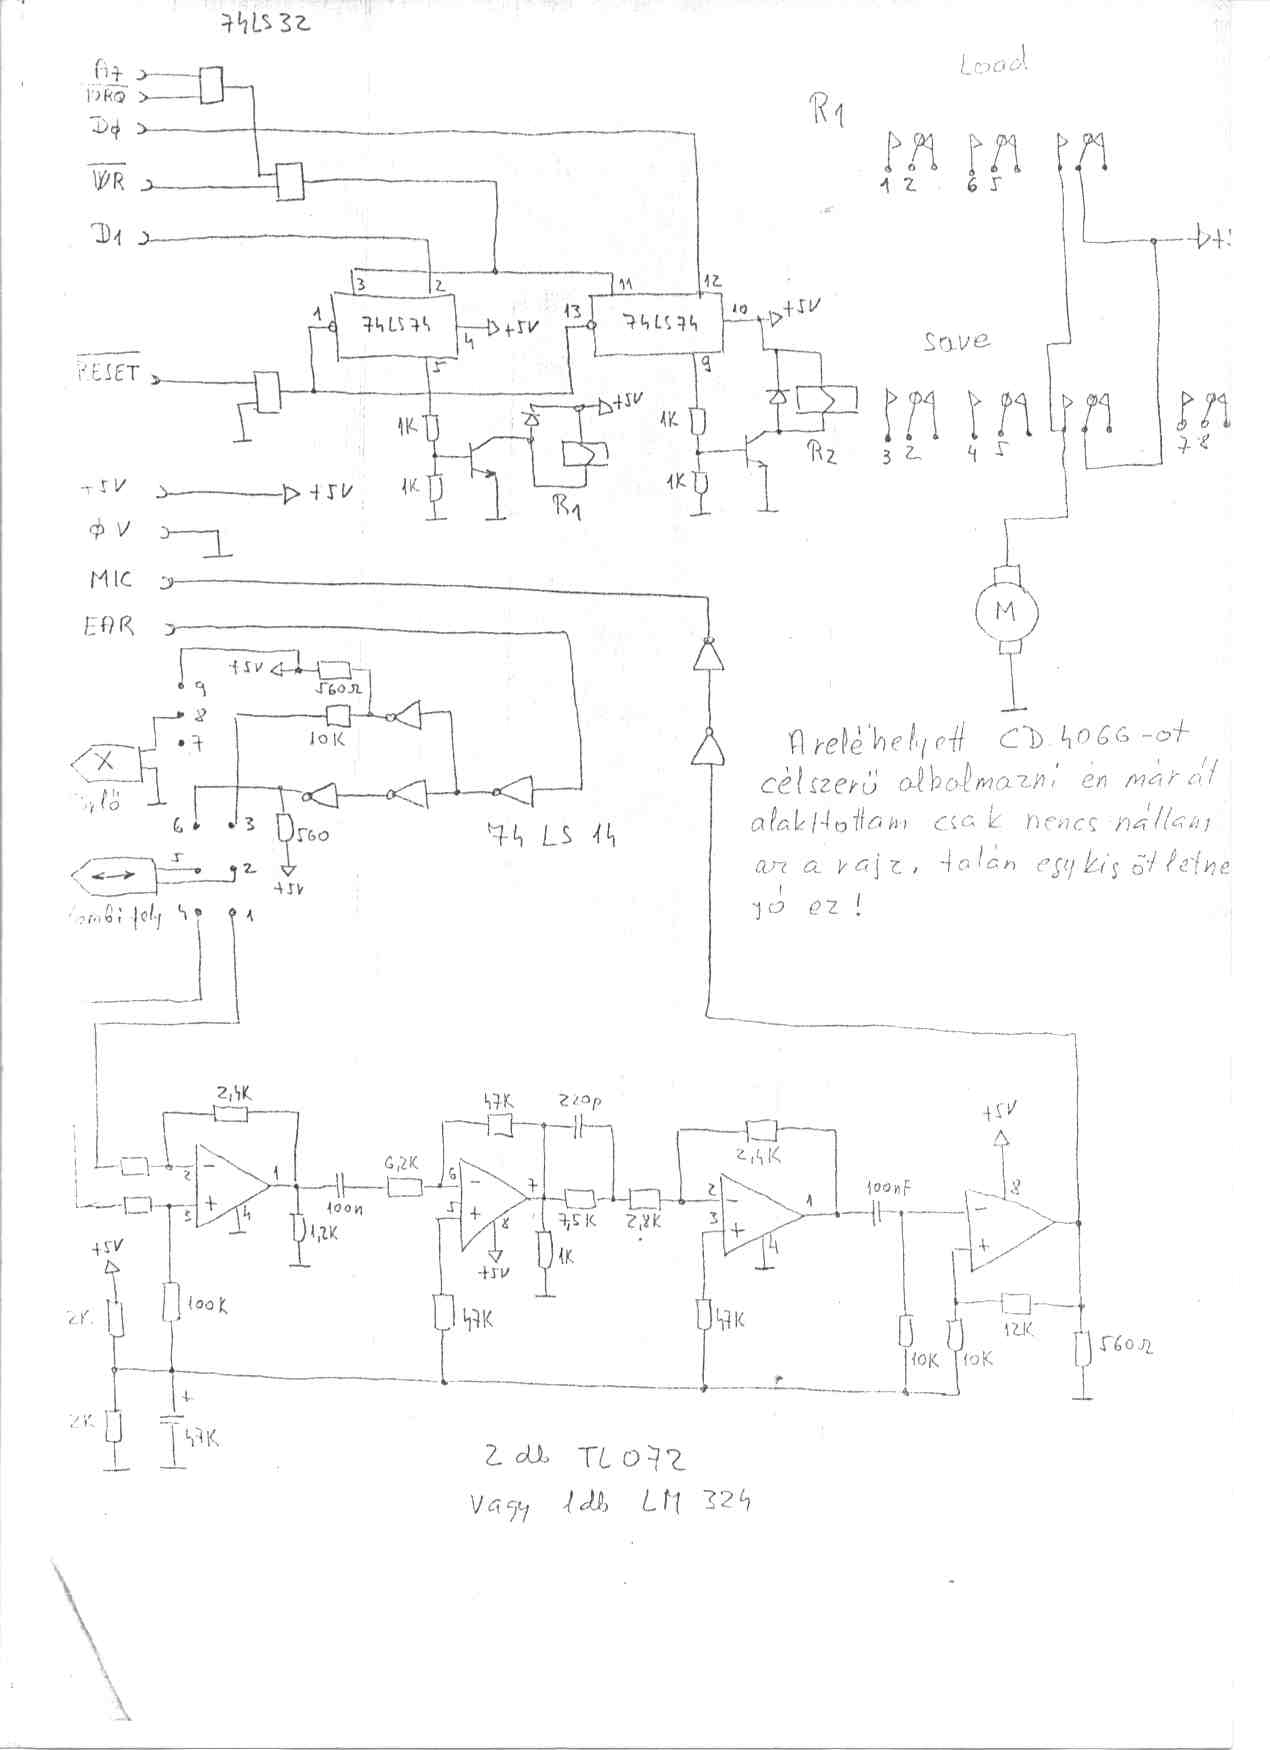 74LS32
Load
A7
R1
DØ
1 2 6 5
WR
D1
3 2 11 12
1 74LS74 +5V 13 74LS74 10 +5V
4
save
5 9
RESET
+5V
1K 1K
R2
3 2 4 5 7 8
1K 1K
R1
+5V +5V
Ø V
MIC
M
EAR
+5V
9 560Ω
8
7 10K
X
A reléhelyett CD.4066-ot
célszerű albolmazni én már át
6 3 560 74 LS 14
alakítottam csak nencs nállam
5 2
az a rajz, talán egy kis ötletne
+5V
4 1
jó ez!
2,4K 47K 220p +5V
2,4K
2 1 6,2K 6 7 2 1 100nF 8
3 4 100n 5 8 7,5K 2,8K 3 4
1,2K 1K
+5V +5V
2K 100K 47K 47K 12K
10K 10K 560Ω
+
2K 47K
2 db TL072
vagy 1db LM 324